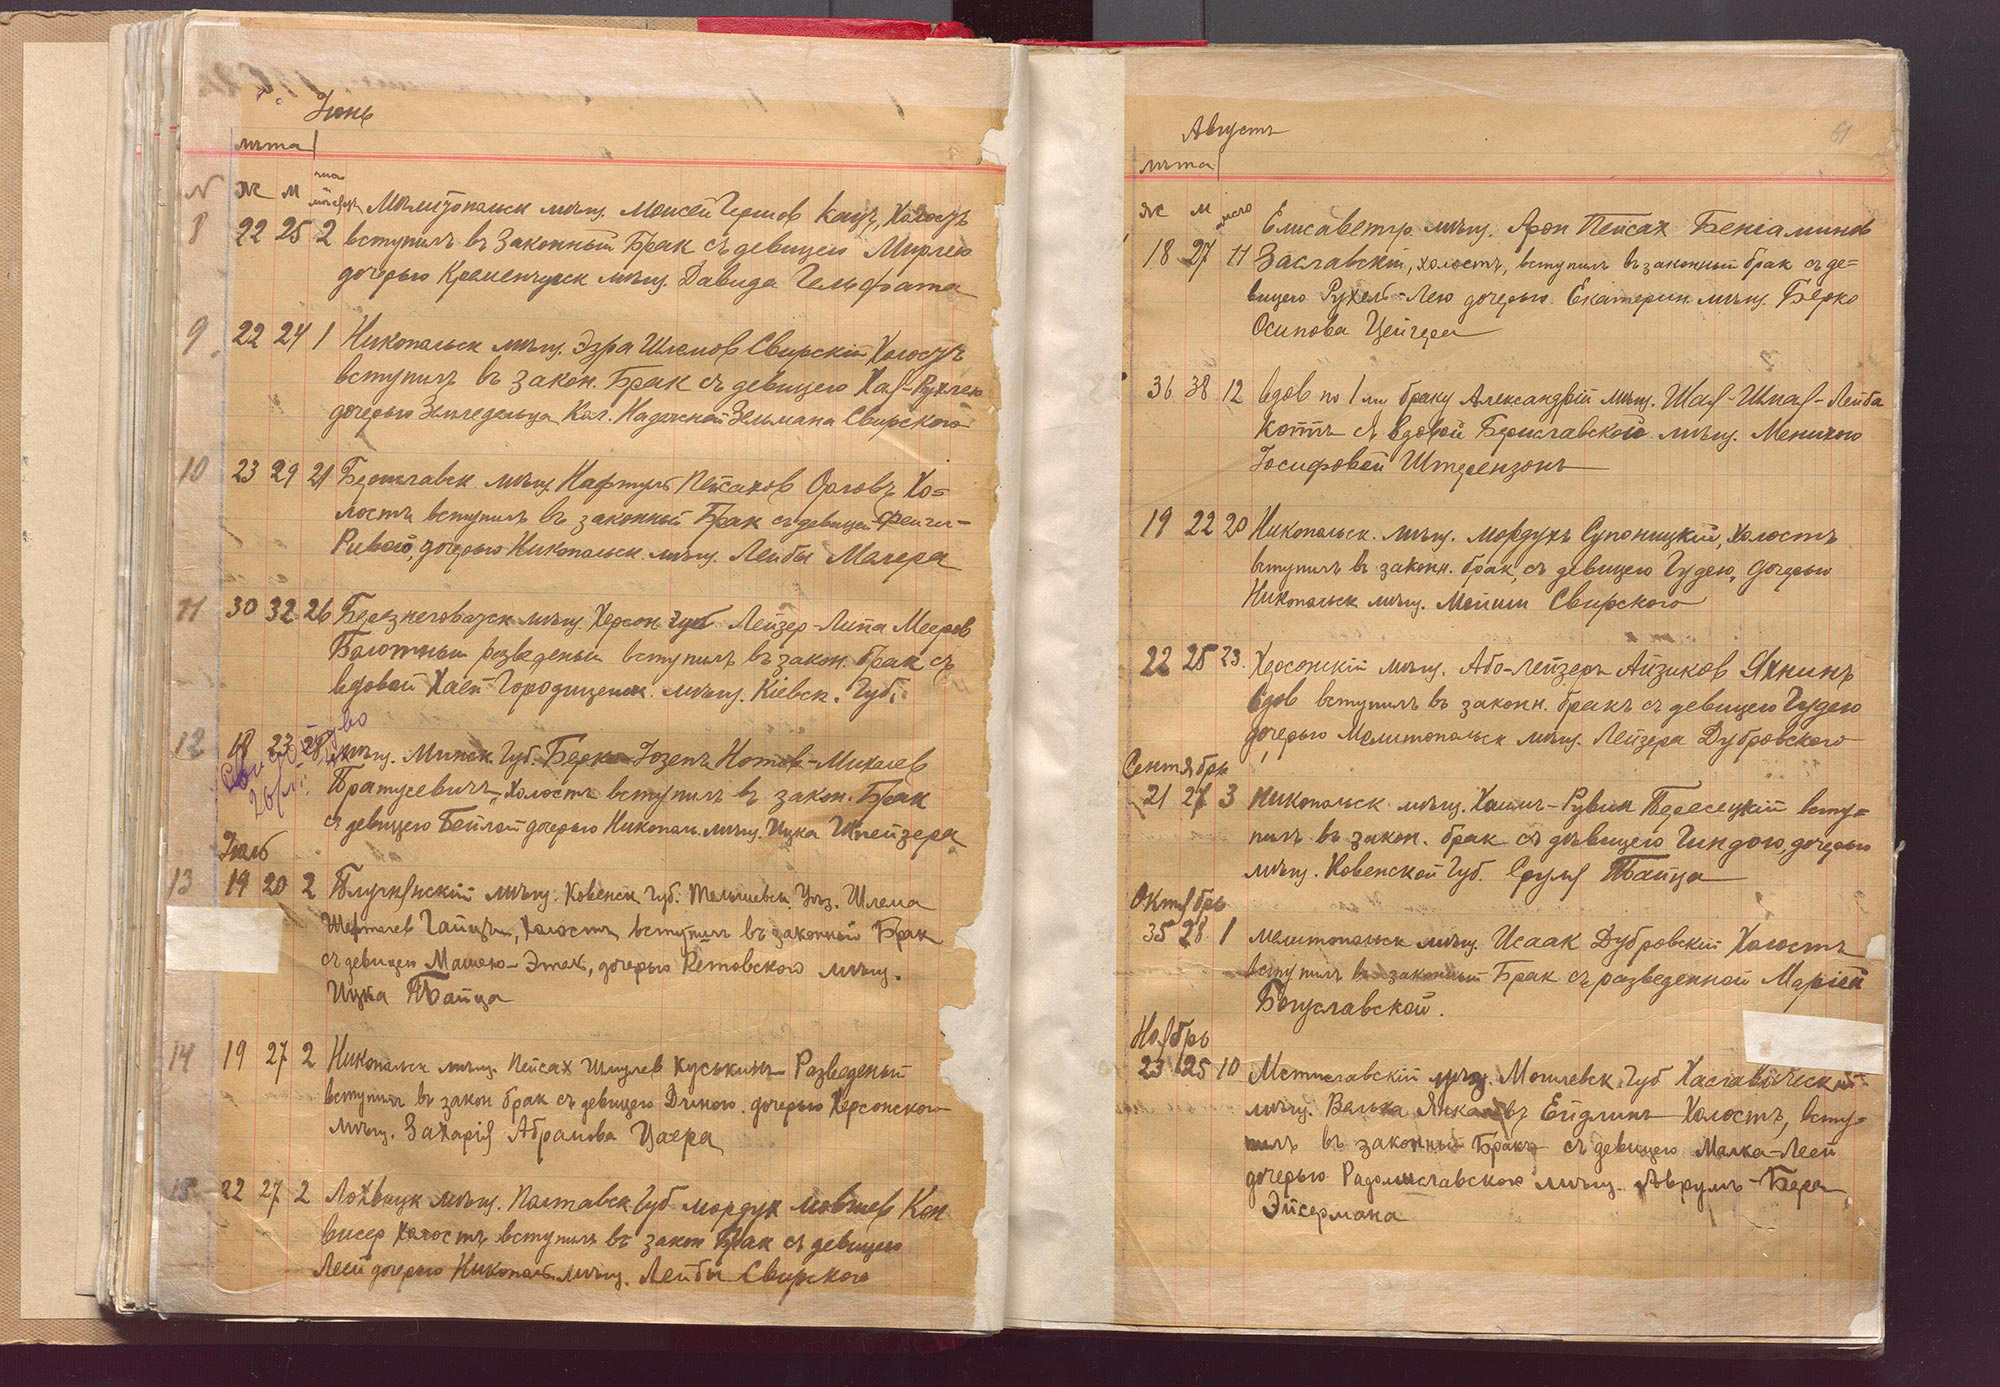 Іюнь
лѣта
№ ж м число
8 22 25 2 Мелитопольск мѣщ. Моисей Гершов Кацъ, Холостъ
вступилъ въ Законный Бракъ съ девицею Мирлею
дочерью Кременчугск мѣщ. Давида Гельфата
9 22 24 1 Никопольск мѣщ. Эзра Шлемов Свирскій, Холостъ
вступилъ въ закон. Бракъ съ девицею Хая-Рухлею
дочерью Земледельца Кол. Надежной Зельмана Свирского
10 23 29 21 Бериславск мѣщ. Нафтуль Пейсахов Орловъ Хо=
лостъ вступилъ въ законный Бракъ съ девицей Фейги-
Ривой, дочерью Никопольск. мѣщ. Лейбы Магера
11 30 32 26 Березнеговатск мѣщ. Херсон губ Лейзер-Липа Мееров
Болотный разведеный вступилъ въ закон. бракъ съ
вдовой Хаей Городищенск. мѣщ. Кіевск. Губ.
12 18 23 28 мѣщ. Минск. Губ. Берко-Іозепъ Нотов-Михелев
Братусевичъ, Холостъ вступилъ въ закон. Бракъ
съ девицею Бейлой дочерью Никопол. мѣщ. Ицка Шпейзера
Іюль
13 19 20 2 мѣщ. Ковенск Губ. Тельшевск. Уѣз. Шлема
Шефтелев Гайцъ, Холостъ вступилъ въ законный Бракъ
съ девицею Машею-Этех, дочерью Ретовского мѣщ.
Ицка Тайца
14 19 27 2 Никопольск мѣщ. Пейсах Шмулев Куськинъ Разведеный
вступилъ въ закон бракъ съ девицею Диною дочерью Херсонского
мѣщ. Захарія Абрамова Цаера
15 22 27 2 Лохвицк мѣщ. Полтавск Губ Мордух Мовшев Кон
висер Холостъ вступилъ въ закон Бракъ съ девицею
Леей дочерью Никополь. мѣщ. Лейбы Свирского
Августъ
61
лѣта
ж м число
Елисаветгр. мѣщ. Арон Пейсах Беніаминов
18 27 11 Заславскій, холостъ, вступилъ въ законный бракъ съ де=
вицею Рухель-Лею дочерью Екатерин. мѣщ. Берко
Осипова Цейгера
36 38 12 вдов по 1му браку Александрій мѣщ. Шая-Шпая-Лейба
Коттъ съ вдовой Бериславской мѣщ. Менихою
Іосифовой Штерензонъ
19 22 20 Никопольск. мѣщ. Мордухъ Супоницкій, Холостъ
вступилъ въ законн. бракъ, съ девицею Гудею, дочерью
Никопольск мѣщ. Мойши Свирского
22 25 23. Херсонскій мѣщ. Або-Лейзеръ Айзиков Яхнинъ
вдов вступилъ въ законн. бракъ съ девицею Гудею
дочерью Мелитопольск мѣщ. Лейзера Дубровского
Сентябрь
21 27 3 Никопольск мѣщ. Хаимъ-Рувин Тересецкій всту=
пилъ въ закон. бракъ съ дѣвицею Гиндою, дочерью
мѣщ. Ковенской Губ. Сруля Тайца
Октябрь
35 28 1 Мелитопольск мѣщ. Исаак Дубровскій Холостъ
вступилъ въ законный Бракъ съ разведенной Маріей
Богуславской.
Ноябрь
23 25 10 Мстиславскій мѣщ. Могилевск. Губ Хаславическій
мѣщ. Велька Янкелевъ Ейдлинъ Холостъ, всту=
пилъ въ законный Бракъ съ девицею Малка-Леей
дочерью Радомысльскою мѣщ. Аврумъ-Бера
Эйсермана